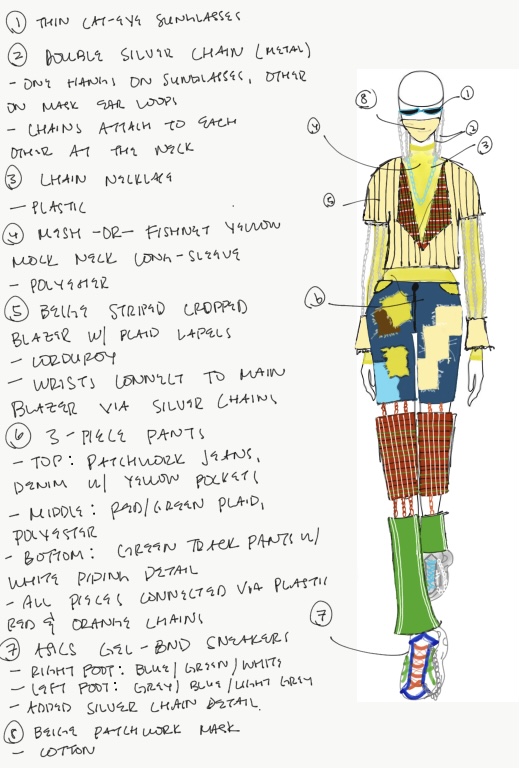 ① THIN CAT-EYE SUNGLASSES
② DOUBLE SILVER CHAIN (METAL)
- ONE HANGS ON SUNGLASSES, OTHER
ON MASK EAR LOOPS
- CHAINS ATTACH TO EACH
OTHER AT THE NECK
③ CHAIN NECKLACE
- PLASTIC
④ MESH -OR- FISHNET YELLOW
MOCK NECK LONG-SLEEVE
- POLYESTER
⑤ BEIGE STRIPED CROPPED
BLAZER W/ PLAID LAPELS
- CORDUROY
- WRISTS CONNECT TO MAIN
BLAZER VIA SILVER CHAINS
⑥ 3-PIECE PANTS
- TOP: PATCHWORK JEANS,
DENIM W/ YELLOW POCKETS
- MIDDLE: RED/GREEN PLAID,
POLYESTER
- BOTTOM: GREEN TRACK PANTS W/
WHITE PIPING DETAIL
- ALL PIECES CONNECTED VIA PLASTIC
RED & ORANGE CHAINS
⑦ ASICS GEL-BND SNEAKERS
- RIGHT FOOT: BLUE/GREEN/WHITE
- LEFT FOOT: GREY/BLUE/LIGHT GREY
- ADDED SILVER CHAIN DETAIL.
⑧ BEIGE PATCHWORK MASK
- COTTON
⑧
①
②
④
③
⑤
⑥
⑦